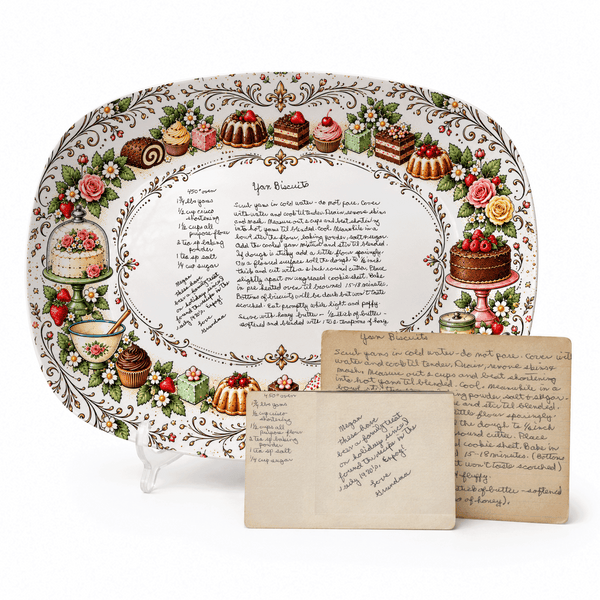 Yam Biscuits
450° oven
1½ lbs yams
½ cup crisco
shortening
1½ cups all
purpose flour
2 tsp baking
powder
1 tsp salt
¼ cup sugar
Megan
these have
been a family treat
on holidays since I
found the recipe in the
early 1970's. Enjoy!
Love
Grandma
Scrub yams in cold water - do not pare. Cover
with water and cook til tender. Drain, remove skins
and mash. Measure out 2 cups and beat shortening
into hot yams til blended. Cool. Meanwhile in a
bowl stir the flour, baking powder, salt & sugar.
Add the cooled yam mixture and stir til blended.
If dough is sticky add a little flour sparingly.
On a floured surface roll the dough to ½ inch
thick and cut with a 2 inch round cutter. Place
slightly apart on ungreased cookie sheet. Bake
in pre heated oven til browned 15-18 minutes.
Bottoms of biscuits will be dark but won't taste
scorched. Eat promptly while light and fluffy
Serve with honey butter - ½ stick of butter -
softened and blended with 1 tablespoons of honey
Yam Biscuits
Scrub yams in cold water - do not pare. Cover with
water and cook til tender. Drain, remove skins &
mash. Measure out 2 cups and beat shortening
into hot yams til blended. Cool. Meanwhile in a
bowl stir
powder, salt & sugar.
and stir til blended.
little flour sparingly.
the dough to ½ inch
round cutter. Place
cookie sheet. Bake in
15-18 minutes. (Bottoms
won't taste scorched)
fluffy
stick of butter - softened
of honey).
450° oven
1½ lbs yams
½ cup crisco
shortening
1½ cups all
purpose flour
2 tsp baking
powder
1 tsp salt
¼ cup sugar
Megan
these have
been a family treat
on holidays since I
found the recipe in the
early 1970's. Enjoy!
Love
Grandma